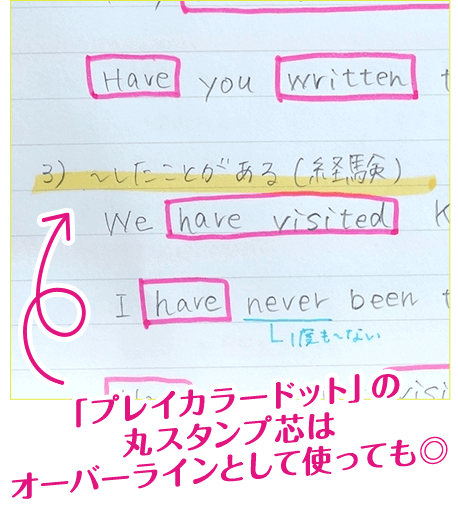 Have you written t
3) ～したことがある(経験)
We have visited K
I have never been t
1度も～ない
「プレイカラードット」の
丸スタンプ芯は
オーバーラインとして使っても◎